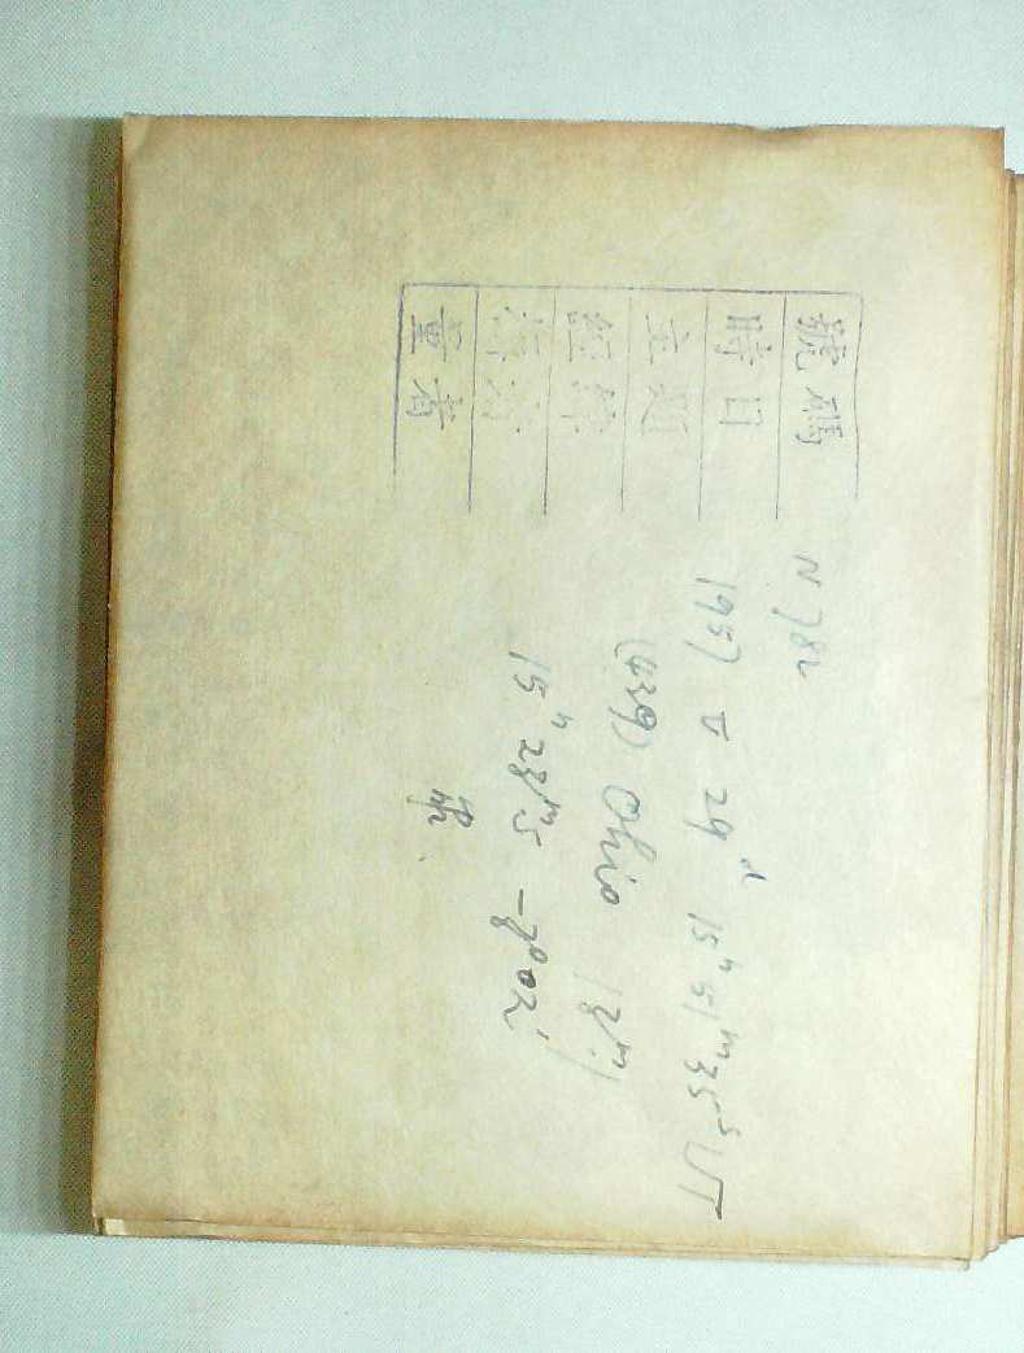 號碼 N 782
時日 1957 V 29 15ʰ 51ᵐ 35ˢ UT
主題 (439) Ohio
經緯 15ʰ 28ᵐ5 -8°02'
量者